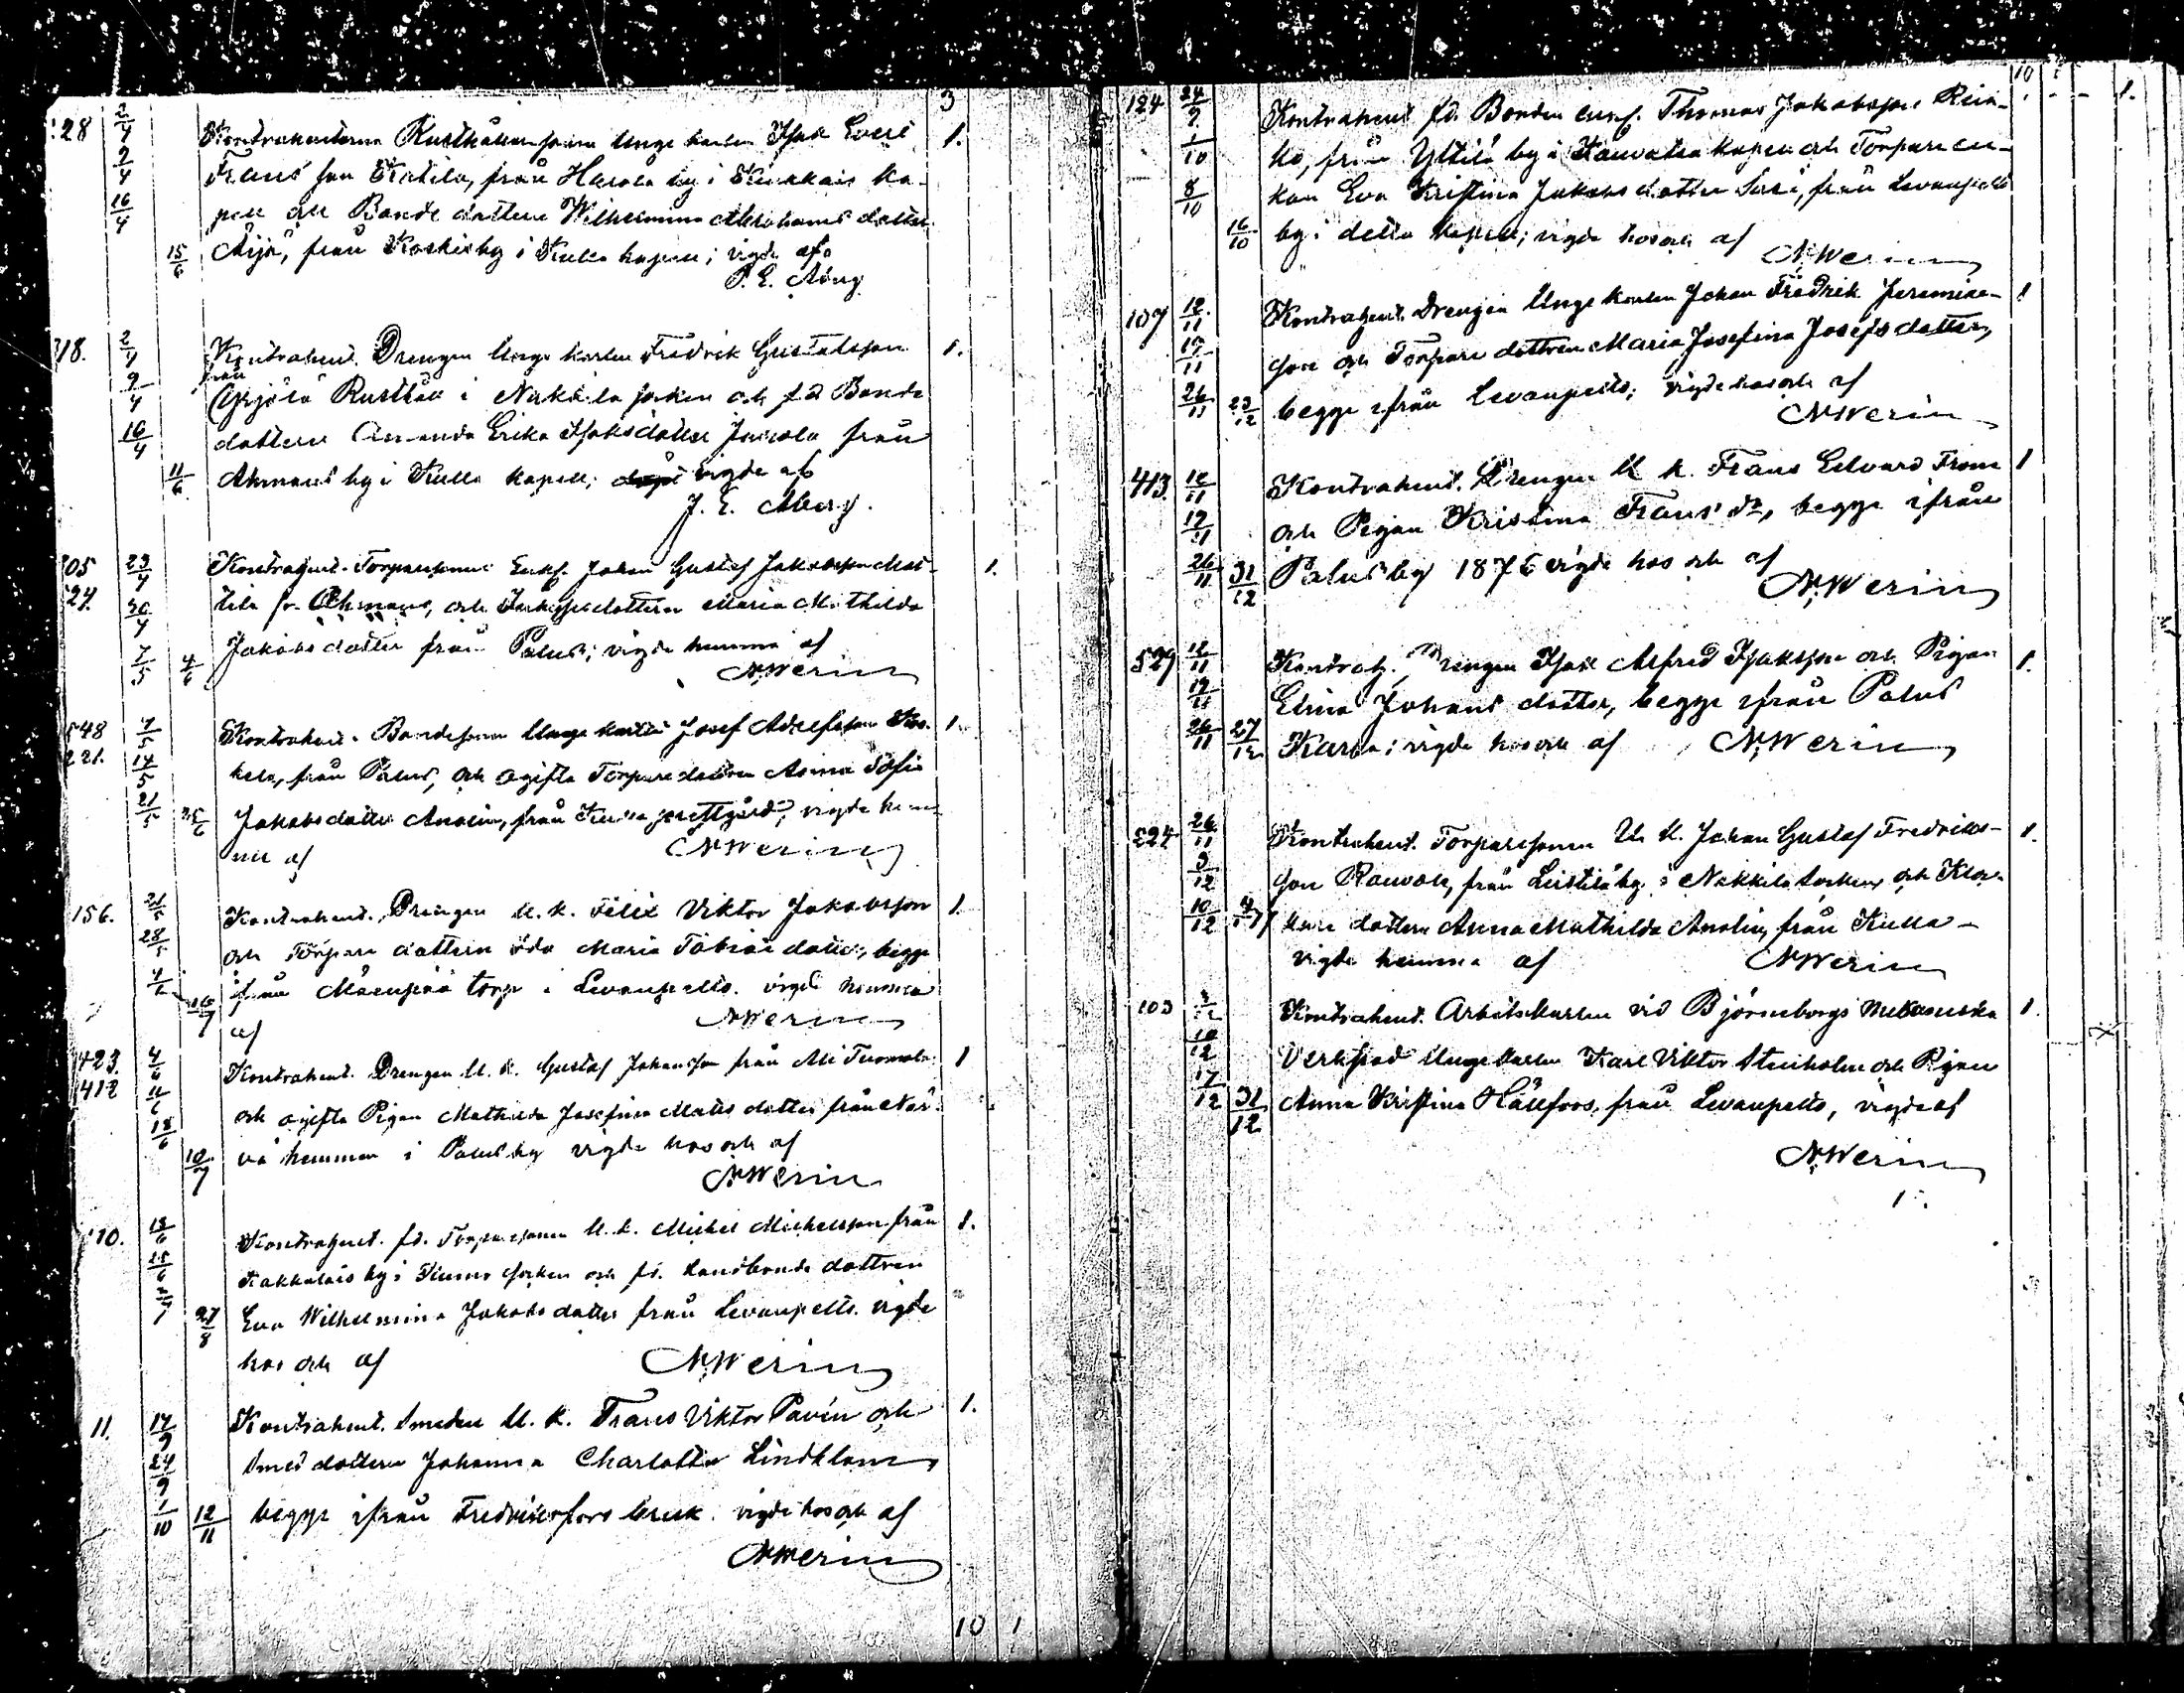 3
128 2/4 Kontrahenterna Rusthållaresonen Unge karlen Isak Evert 1.
9/4 Frans son Kratila, från Harola by i Kiukais ka-
16/4 pell och Bonde dottern Wilhelmina Abrahams dotter
15/6 Äijä, från Koskis by i Kulla kapell; vigde af
318. 2/4 Kontrahent. Drengen Unge karlen Fredrik Gustafsson 1.
från
9/4 Arjela Rusthåll i Nakkila socken och fd Bonde
16/4 dottern Amanda Erika Isaksdotter från
11/6 Ahmaus by i Kulla kapell; vigde af
J. E. Åberg.
305 23/4 Kontrahent. Torparesonen Enkl. Johan Gustaf Jakobsson Mat- 1.
524. 30/4 tila fr. Ahmaus, och dottern Maria Mathilda
7/5 4/6 Jakobs dotter från Palus; vigde hemma af
N. Werin
548 7/5 Kontrahent. Bondesonen Unge karlen Josef Adolfsson Kos- 1.
221. 14/5 kela, från Palus, och ogifta Torparedottren Anna Sofia
21/5 25/6 Jakobsdotter Analin, från Kulla prestgård; vigde hem-
ma af N. Werin
156. 21/5 Kontrahent. Drengen U. k. Felix Viktor Jakobsson 1.
28/5 och Torpare dottern Ida Maria Tobias dotter, begge
4/6 ifrån Mäenpää torp i Levanpelto. vigde hemma
16/7 af N. Werin
423. 4/6 Kontrahent. Drengen U. k. Gustaf Johansson från Ali Tuomola 1
412 11/6 och ogifta Pigan Mathilda Josefina Matts dotter från När-
18/6 10/7 vä hemman i Palus by vigde hos och af
N. Werin
110. 18/6 Kontrahent. fd. Torparesonen U. k. Mickel Mickelsson från 1.
25/6 Kakkulais by i Kumo socken och fd. Landbonde dottren
2/7 27/8 Eva Wilhelmina Jakobs dotter från Levanpelto. vigde
hos och af N. Werin
11. 17/9 Kontrahent. Smeden U. k. Frans Viktor Pavén och 1.
24/9 Smed dottern Johanna Charlotta Lindblom,
1/10 12/11 begge ifrån Fredriksfors bruk. vigde hos och af
N. Werin
10 1
10 1.
124 24/9 Kontrahent fd. Bonden enkl. Thomas Jakobsson Rein-
1/10 ko, från Yttilä by i Kauvatsa kapell och Torpare en-
8/10 kan Eva Kristina Jakobs dotter Sasi, från Levanpelto
16/10 by i detta kapell; vigde hos och af
N. Werin
107 12/11 Kontrahent. Drengen Unge karlen Johan Fredrik Jeremias- 1
19/11 son och Torpare dottren Maria Josefina Josefs dotter,
26/11 23/12 begge ifrån Levanpelto; vigde hos och af
N. Werin
413. 12/11 Kontrahent. Drengen U. k. Frans Edvard From 1
19/11 och Pigan Kristina Frans' dr, begge ifrån
26/11 31/12 Palus by 1876 vigde hos och af
N. Werin
529 12/11 Kontrah. Drengen Isak Alfred Isaksson och Pigan 1.
19/11 Elina Johans dotter, begge ifrån Palus
26/11 27/12 Karla; vigde hos och af N. Werin
224 26/11 Kontrahent. Torparesonen U. k. Johan Gustaf Fredriks- 1.
3/12 son Rauvola, från Leistilä by i Nakkila socken och Kloc-
10/12 kare dottern Anna Mathilda Analin, från Kulla -
vigde hemma af N. Werin
103 3/12 Kontrahent. Arbetskarlen vid Björneborgs Mekaniska 1.
10/12 Verkstad Unge karlen Karl Viktor Stenholm och Pigan
17/12 31/12 Anna Kristina Hällfors, från Levanpelto, vigde af
N. Werin
1.